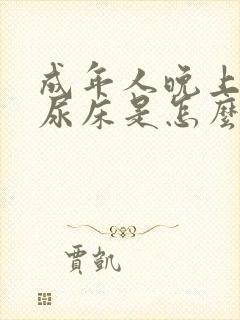 成年人晚上
尿床是怎麼
賈凱